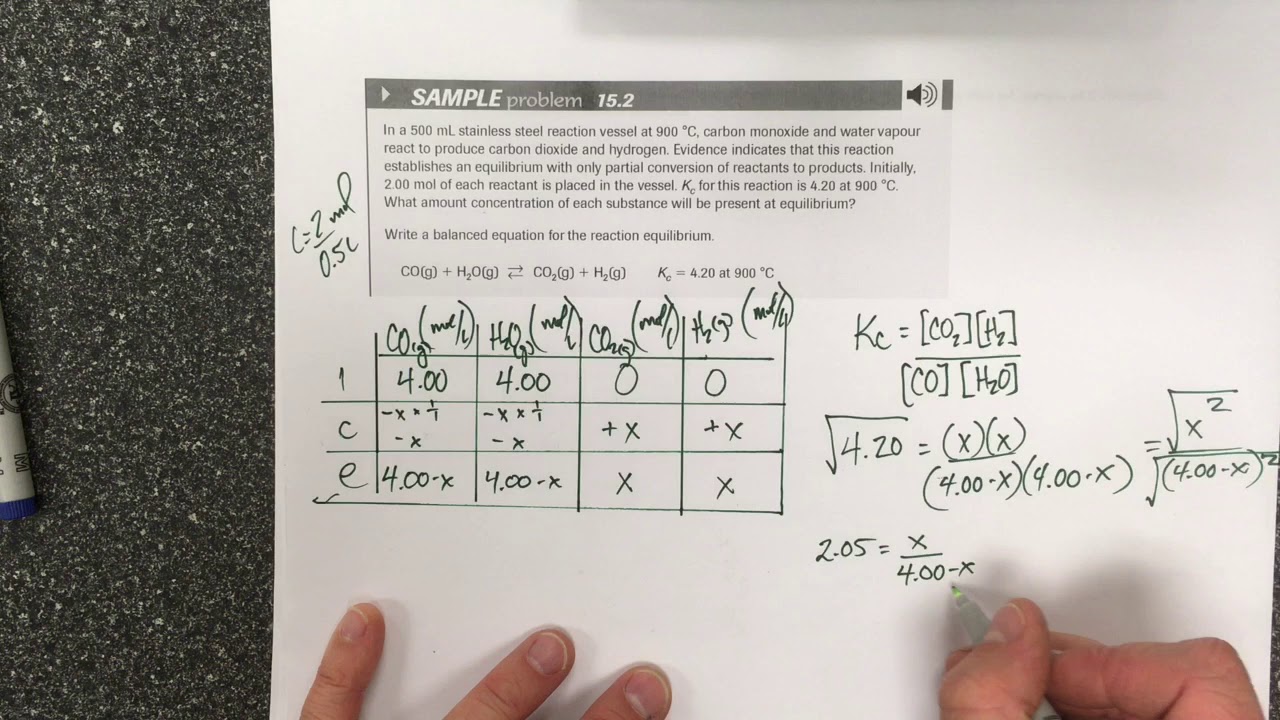 SAMPLE problem 15.2
In a 500 mL stainless steel reaction vessel at 900 °C, carbon monoxide and water vapour
react to produce carbon dioxide and hydrogen. Evidence indicates that this reaction
establishes an equilibrium with only partial conversion of reactants to products. Initially,
2.00 mol of each reactant is placed in the vessel. Kc for this reaction is 4.20 at 900 °C.
What amount concentration of each substance will be present at equilibrium?
Write a balanced equation for the reaction equilibrium.
CO(g) + H₂O(g) ⇄ CO₂(g) + H₂(g) Kc = 4.20 at 900 °C
C = 2 mol
0.5L
CO(g) (mol/L) H₂O(g) (mol/L) CO₂(g) (mol/L) H₂(g) (mol/L)
I 4.00 4.00 0 0
-x * 1/1 -x * 1/1
C -x -x +x +x
e 4.00-x 4.00-x x x
Kc = [CO₂][H₂]
[CO][H₂O]
√4.20 = (x)(x) = √x²
(4.00-x)(4.00-x) √(4.00-x)²
2.05 = x
4.00-x